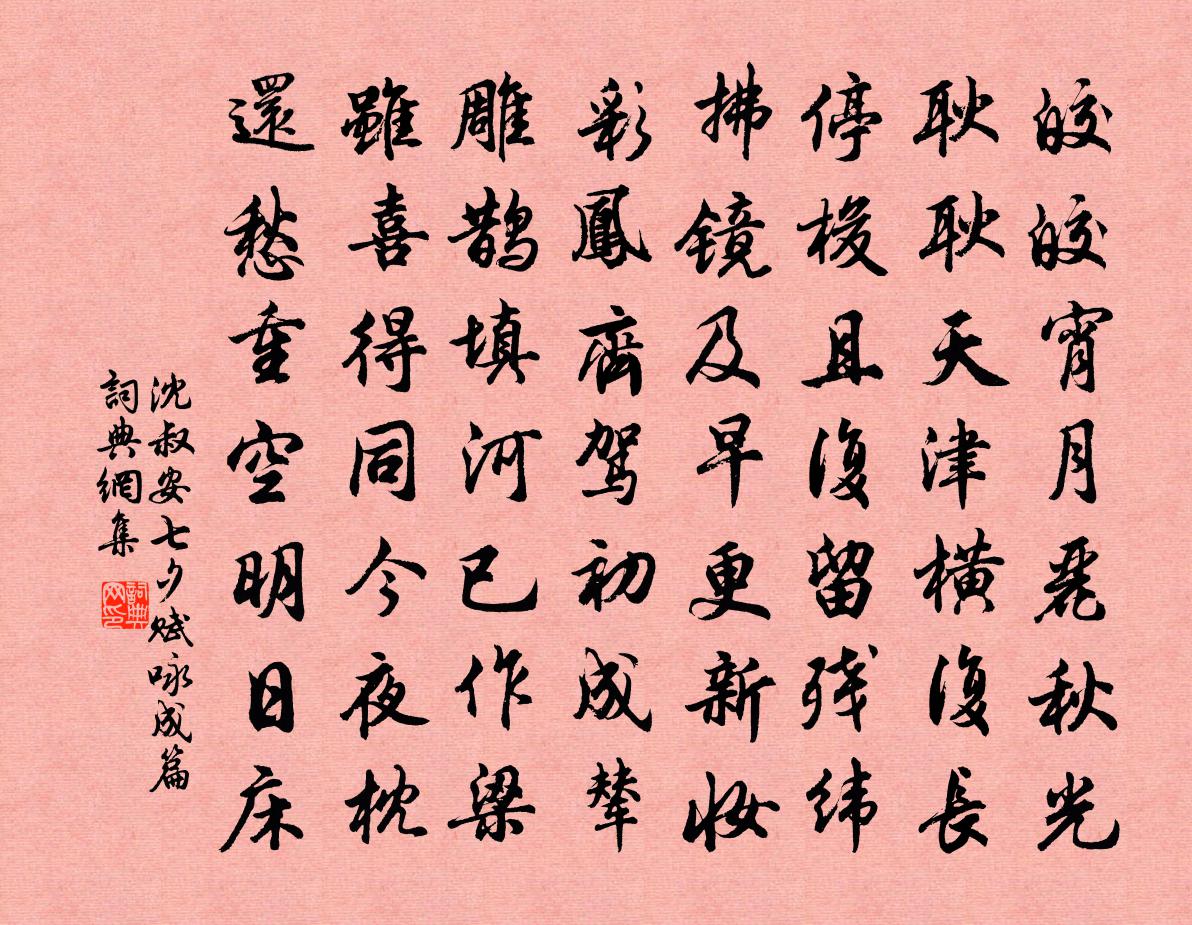 皎皎宵月麗秋光
耿耿天津橫復長
停梭且復留残緯
拂镜及早更新妝
彩鳳齊駕初成輦
雕鹊填河已作梁
雖喜得同今夜枕
還愁重空明日床
沈叔安七夕赋咏成篇
詞典網集
詞典网印